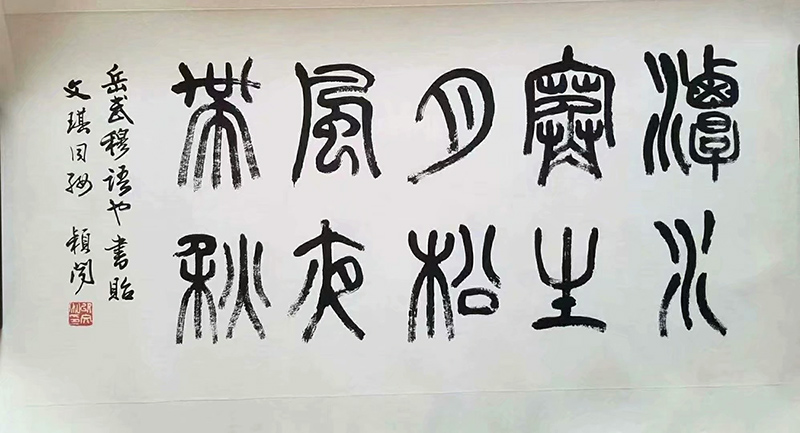 潭水
寒生
月松
風夜
帶秋
岳武穆語也書貽
文琪同好 穎